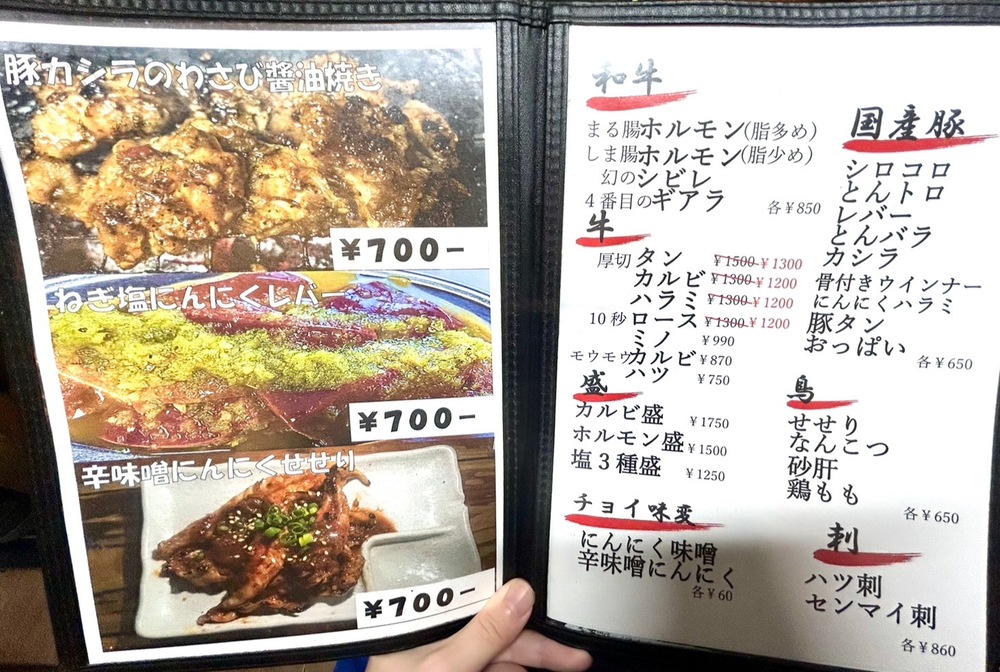 豚カシラのわさび醬油焼き
¥700-
ねぎ塩にんにくレバー
¥700-
辛味噌にんにくせせり
¥700-
和牛
まる腸ホルモン(脂多め)
しま腸ホルモン(脂少め)
幻のシビレ
4番目のギアラ 各¥850
牛
厚切タン ¥1500 ¥1300
カルビ ¥1300 ¥1200
ハラミ ¥1300 ¥1200
10秒ロース ¥1300 ¥1200
ミノ ¥990
モウモウカルビ ¥870
ハツ ¥750
盛
カルビ盛 ¥1750
ホルモン盛 ¥1500
塩3種盛 ¥1250
チョイ味変
にんにく味噌
辛味噌にんにく
各¥60
国産豚
シロコロ
とんトロ
レバー
とんバラ
カシラ
骨付きウインナー
にんにくハラミ
豚タン
おっぱい
各¥650
鳥
せせり
なんこつ
砂肝
鶏もも
各¥650
刺
ハツ刺
センマイ刺
各¥860